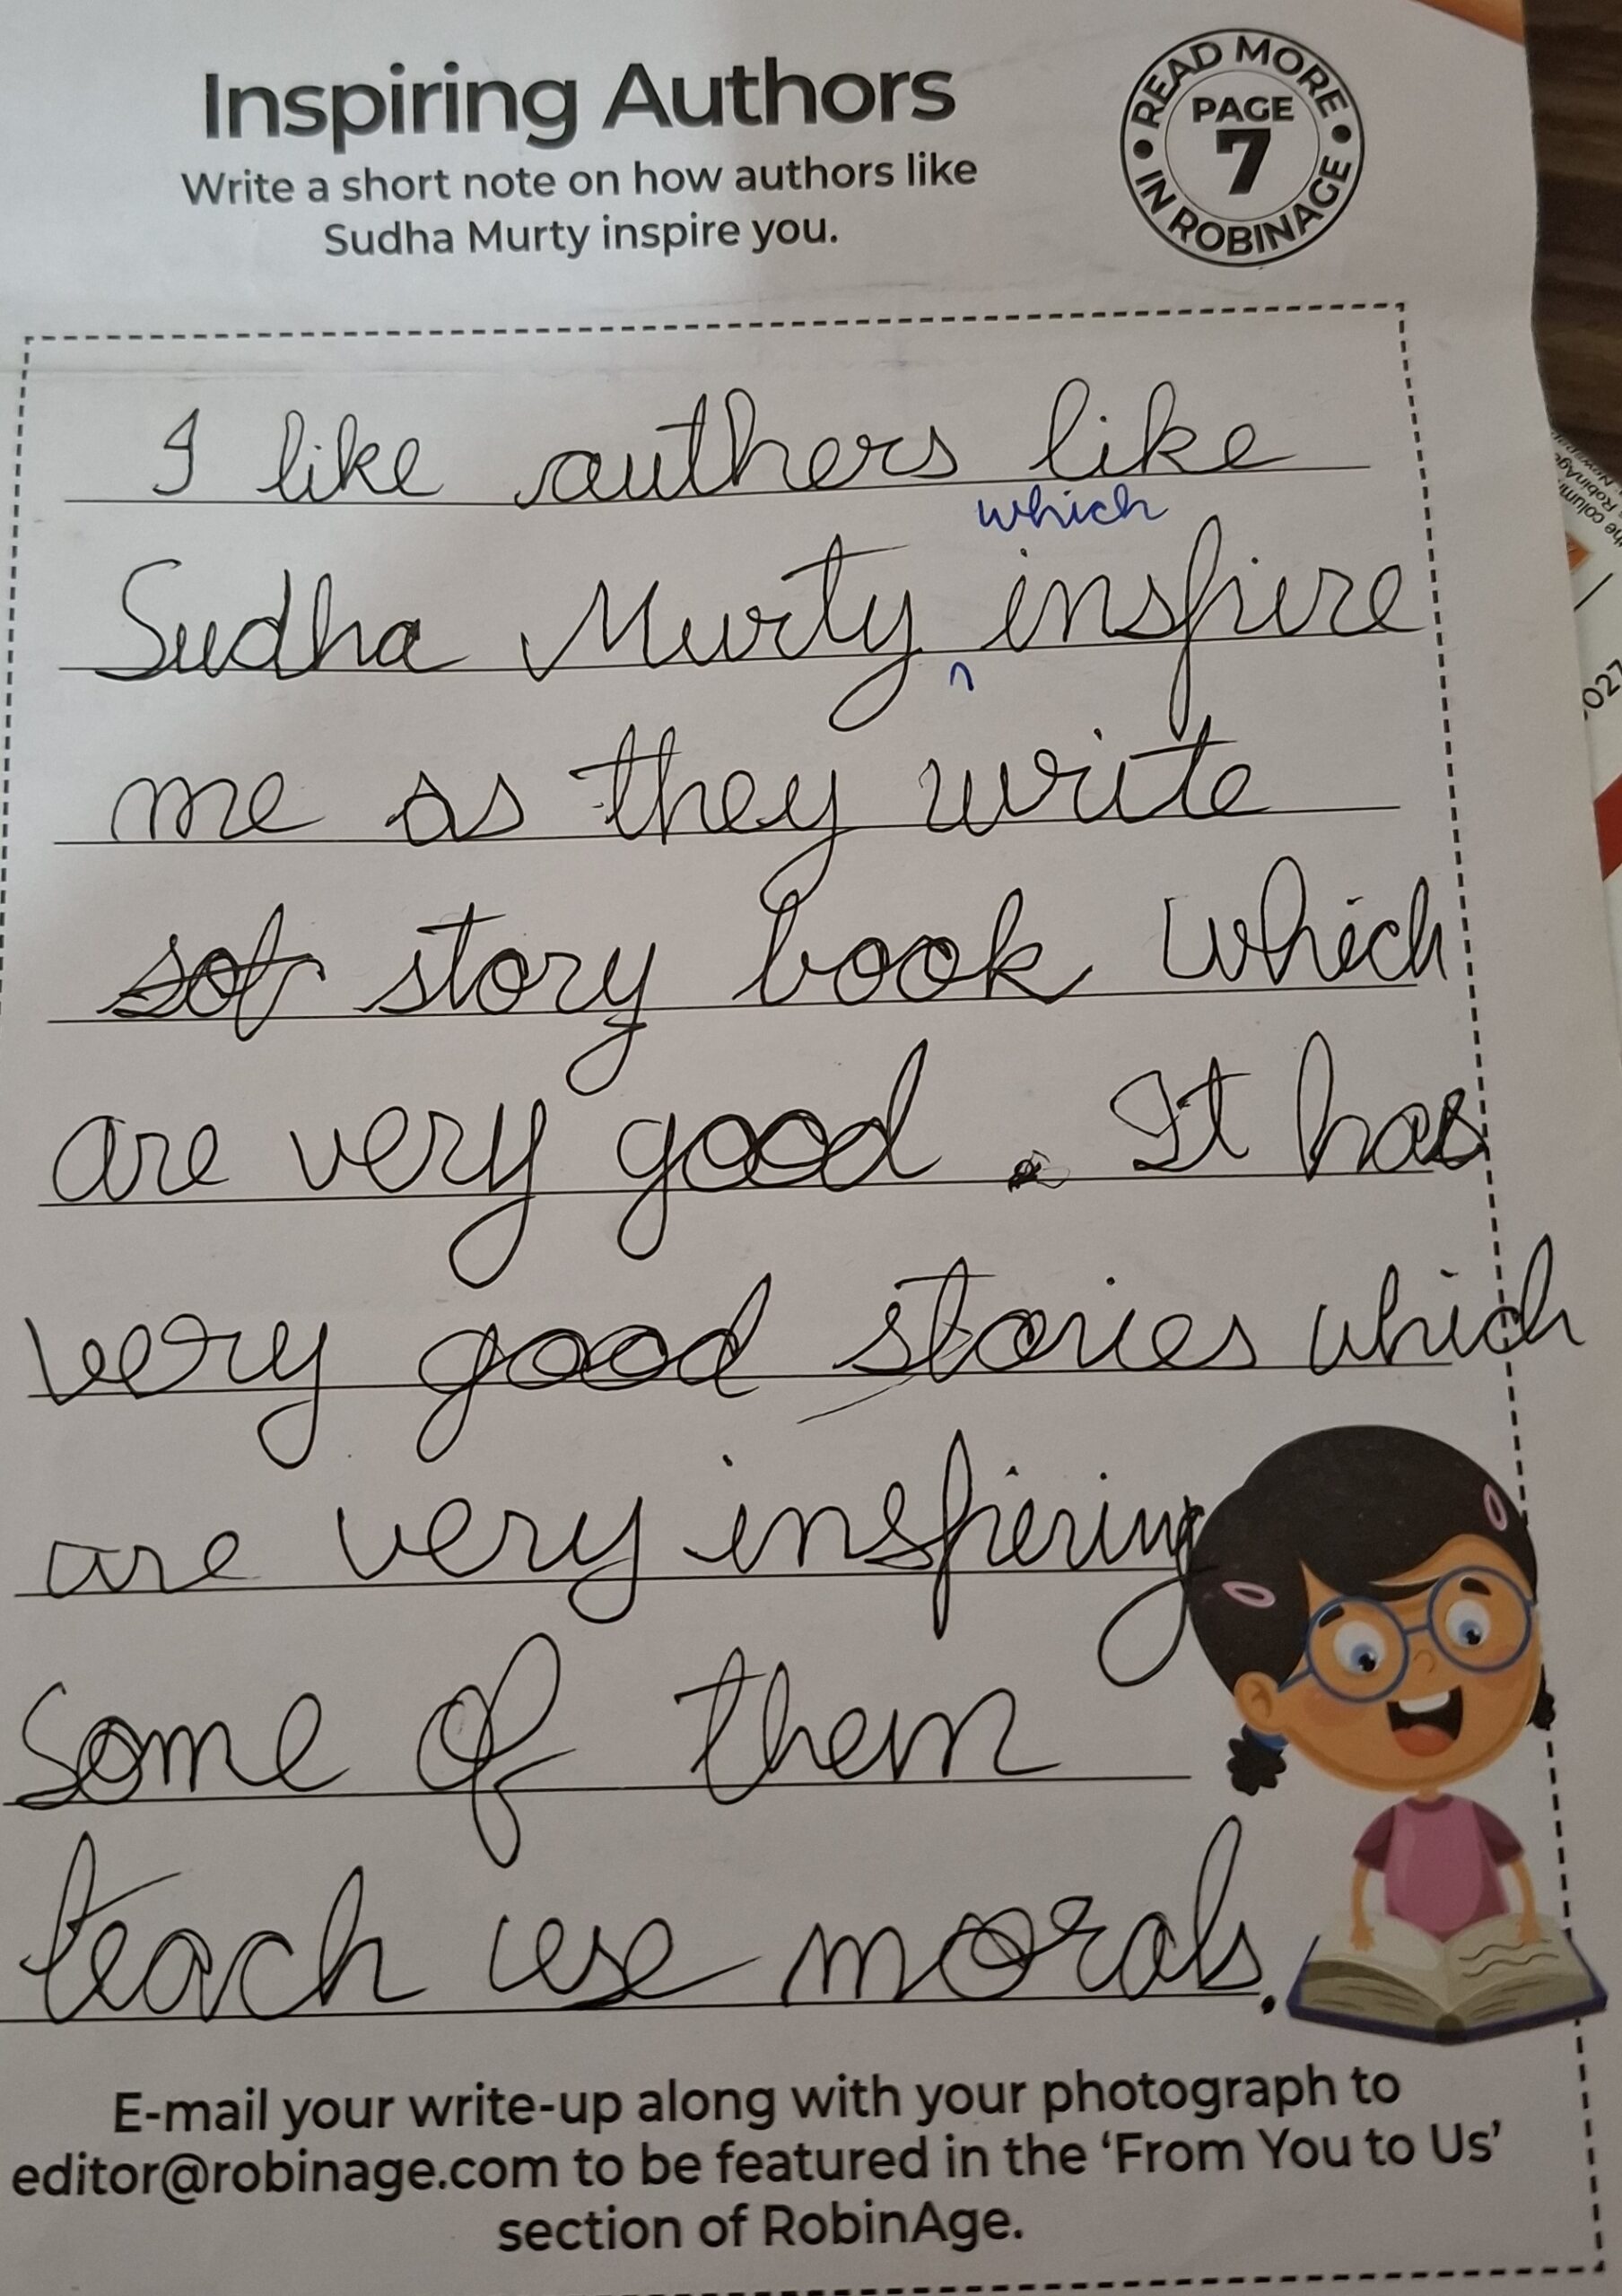 Inspiring Authors
Write a short note on how authors like
Sudha Murty inspire you.
READ MORE
PAGE
7
IN ROBINAGE
I like authers like
which
Sudha Murty ^ inspire
me as they write
sot story book which
are very good . It has
very good stories which
are very inspiering
some of them
teach use morals.
E-mail your write-up along with your photograph to
editor@robinage.com to be featured in the ‘From You to Us’
section of RobinAge.